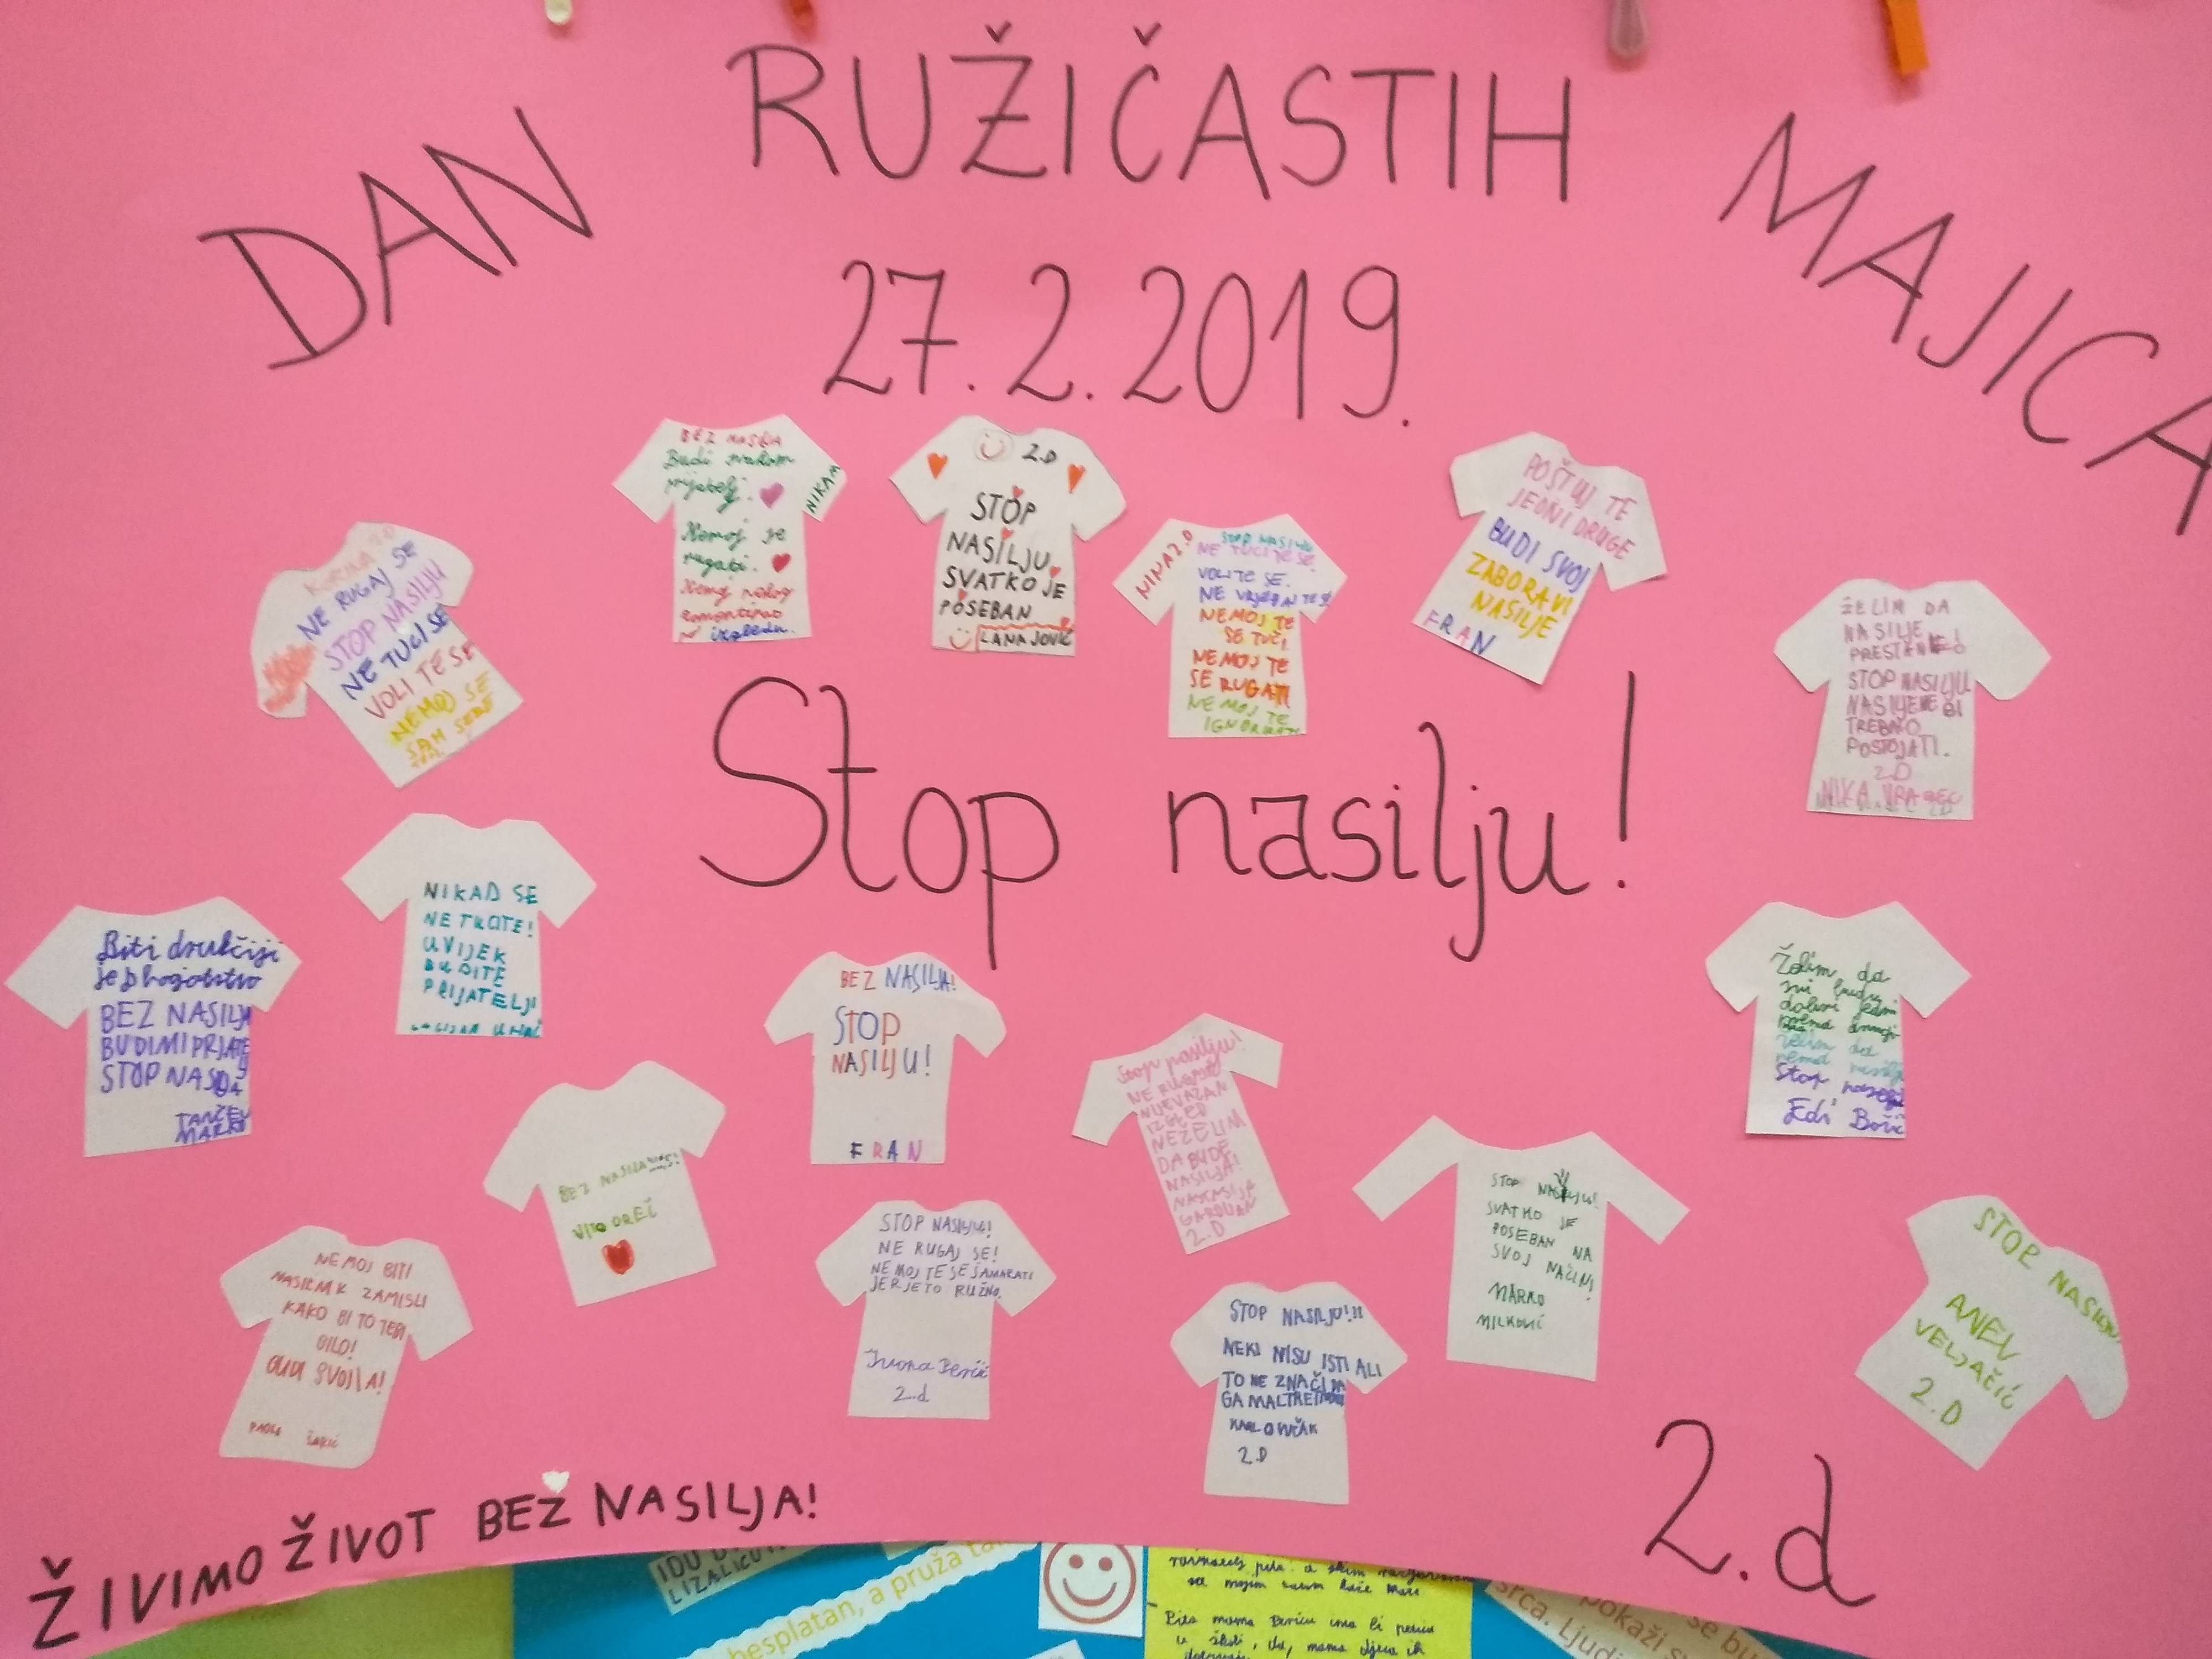 DAN RUŽIČASTIH MAJICA
27.2.2019.
BEZ NASILJA
Budi svakom
prijatelj.
Nemoj se
rugati.
Nemoj nekog
izgledu.
NIKA M
2.D
STOP
NASILJU
SVATKO JE
POSEBAN
LANA JOVIĆ
NINA 2.D
STOP NASILJU
NE TUCITE SE.
VOLITE SE.
NEMOJ TE
SE TUČI,
NEMOJ TE
SE RUGATI
NEMOJ TE
IGNORIRATI
POŠTUJ TE
JEDNI DRUGE
BUDI SVOJ
ZABORAVI
NASILJE
FRAN
NE RUGAJ SE
STOP NASILJU
NE TUCI SE
VOLI TE SE
NEMOJ SE
ŽELIM DA
NASILJE
PRESTANE!
STOP NASILJU
TREBALO
POSTOJATI.
2D
NIKA VRABEC
Stop nasilju!
NIKAD SE
NE TUCITE!
UVIJEK
BUDITE
PRIJATELJI
Biti drukčiji
je bogatstvo
BEZ NASILJA
BUDIMI PRJATE
STOP
BEZ NASILJA!
STOP
NASILJU!
FRAN
Želim da
svi ljudi
dobri jedni
prema
želim da
nema nasilja
Stop
Edi
Stop nasilju!
NE
NIJE VAŽAN
IZGLED
NEŽELIM
DA BUDE
NASILJA!
2.D
BEZ NASILJA
VITO OREČ
STOP NASILJU!
SVATKO JE
POSEBAN NA
SVOJ NAČIN!
MARKO
MILKOVIĆ
STOP NASILJU!
NE RUGAJ SE!
NEMOJ TE SE ŠAMARATI
JER JE TO RUŽNO.
Ivona
2.d
STOP NASILJU
ANEL
VELJAČIĆ
2.D
NEMOJ BITI
NASILNIK ZAMISLI
KAKO BI TO TEBI
BILO!
BUDI SVOJ \A!
STOP NASILJU!!!
NEKI NISU ISTI ALI
TO NE ZNAČI DA
GA
KARLO
2.D
ŽIVIMO ŽIVOT BEZ NASILJA!
2.d
besplatan, a pruža
srca. Ljudi
pokaži